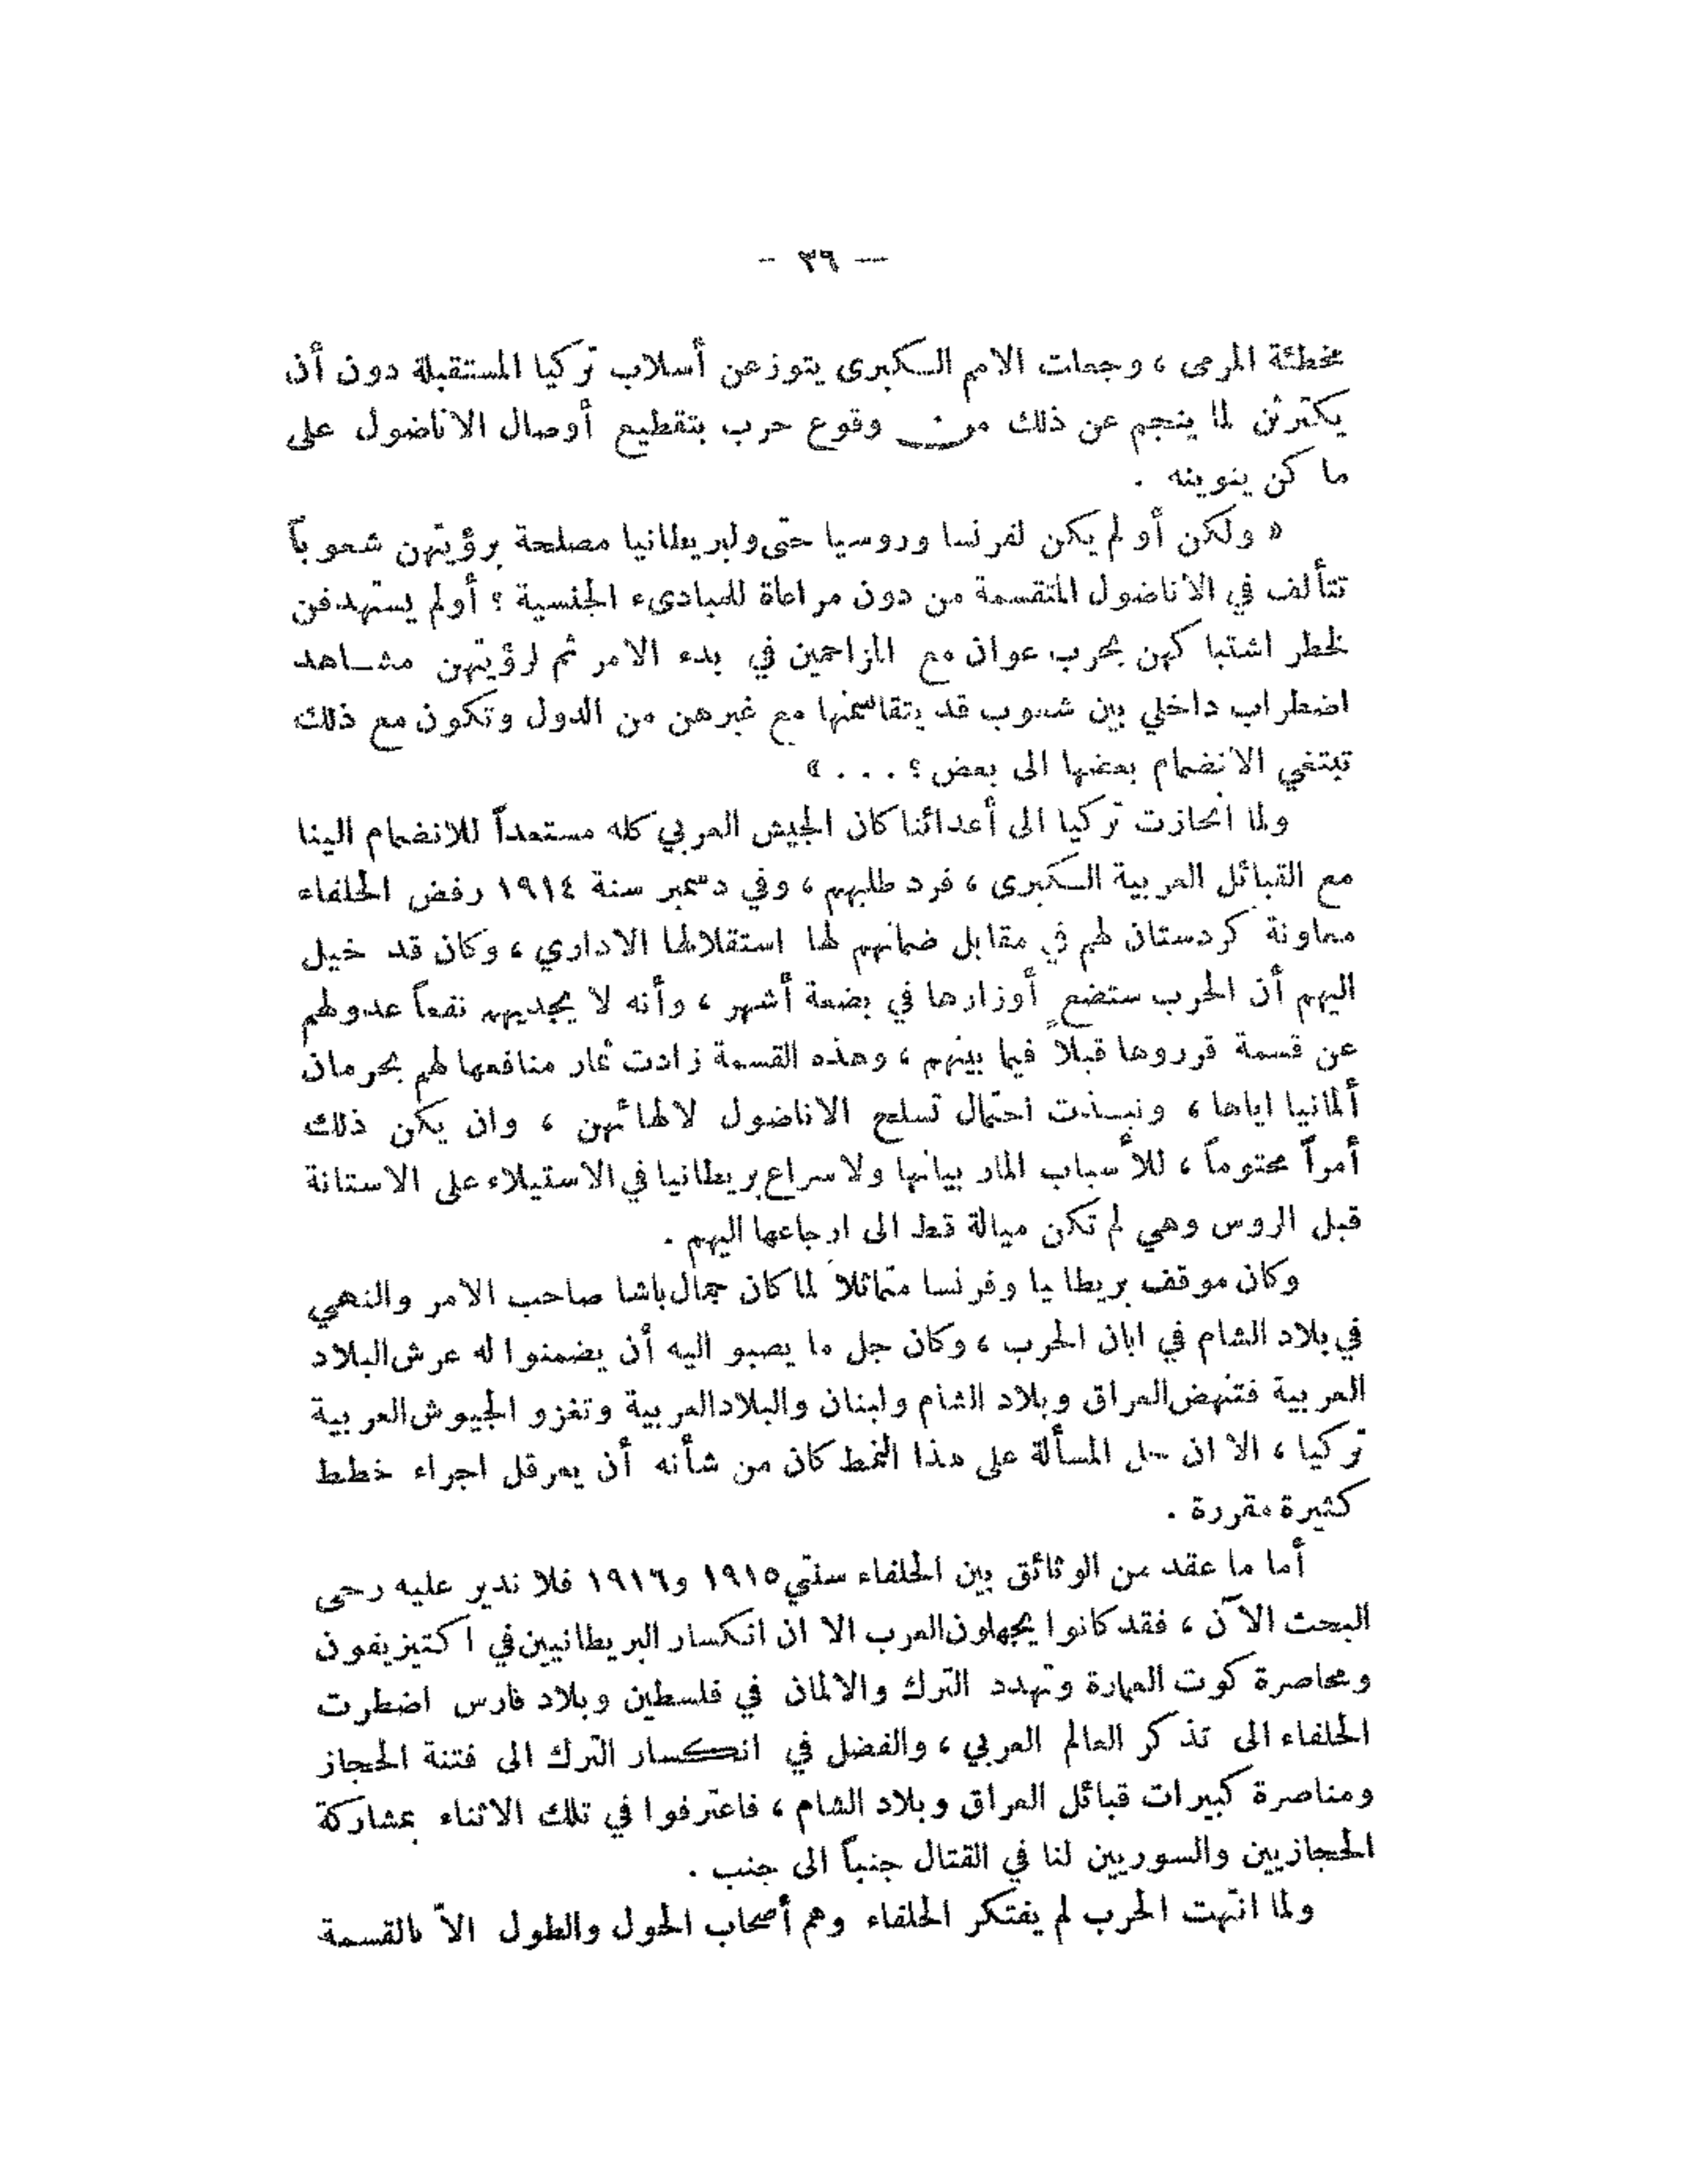 — ٣٦ -
مخطئة المرمى ، وجعلت الامم الكبرى يتوزعن أسلاب تركيا المستقبلة دون أن
يكترثن لما ينجم عن ذلك من وقوع حرب بتقطيع أوصال الاناضول على
ما كن ينوينه .
« ولكن أو لم يكن لفرنسا وروسيا حتى ولبريطانيا مصلحة برؤيتهن شعوباً
تتألف في الاناضول المتقسمة من دون مراعاة للمبادىء الجنسية ؟ أولم يستهدفن
لخطر اشتباكهن بحرب عوان مع المزاحمين في بدء الامر ثم لرؤيتهن مشاهد
اضطراب داخلي بين شعوب قد يتقاسمنها مع غيرهن من الدول وتكون مع ذلك
تبتغي الانضمام بعضها الى بعض ؟ . . . »
ولما انحازت تركيا الى أعدائنا كان الجيش العربي كله مستعداً للانضمام الينا
مع القبائل العربية الكبرى ، فرد طلبهم ، وفي دسمبر سنة ١٩١٤ رفض الحلفاء
معاونة كردستان لهم في مقابل ضمانهم لها استقلالها الاداري ، وكان قد خيل
اليهم أن الحرب ستضع أوزارها في بضعة أشهر ، وأنه لا يجديهم نفعاً عدولهم
عن قسمة قرروها قبلاً فيما بينهم ، وهذه القسمة زادت ثمار منافعها لهم بحرمان
ألمانيا اياها ، ونبذت احتمال تسلح الاناضول لالهائهن ، وان يكن ذلك
أمراً محتوماً ، للأسباب المار بيانها ولاسراع بريطانيا في الاستيلاء على الاستانة
قبل الروس وهي لم تكن ميالة قط الى ارجاعها اليهم .
وكان موقف بريطا يا وفرنسا متماثلاً لما كان جمال باشا صاحب الامر والنهي
في بلاد الشام في ابان الحرب ، وكان جل ما يصبو اليه أن يضمنوا له عرش البلاد
العربية فتنهض العراق وبلاد الشام ولبنان والبلاد العربية وتغزو الجيوش العربية
تركيا ، الا ان حل المسألة على هذا النمط كان من شأنه أن يعرقل اجراء خطط
كثيرة مقررة .
أما ما عقد من الوثائق بين الحلفاء سنتي ١٩١٥ و١٩١٦ فلا ندير عليه رحى
البحث الآن ، فقد كانوا يجهلون العرب الا ان انكسار البريطانيين في اكتيزيفون
ومحاصرة كوت العمارة وتهدد الترك والالمان في فلسطين وبلاد فارس اضطرت
الحلفاء الى تذكر العالم العربي ، والفضل في انكسار الترك الى فتنة الحجاز
ومناصرة كبيرات قبائل العراق وبلاد الشام ، فاعترفوا في تلك الاثناء بمشاركة
الحجازيين والسوريين لنا في القتال جنباً الى جنب .
ولما انتهت الحرب لم يفتكر الحلفاء وهم أصحاب الحول والطول الاّ بالقسمة